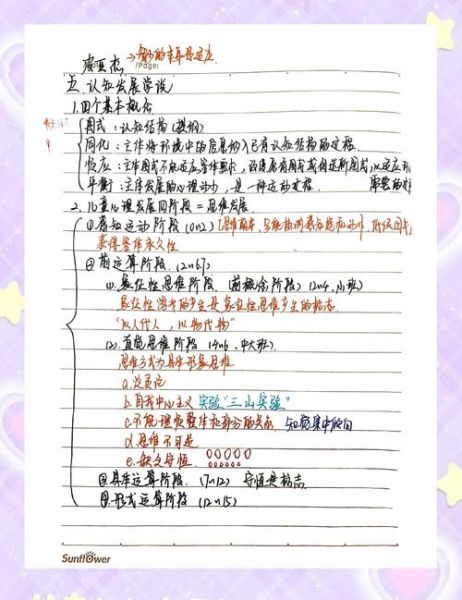 →智力的本质是适应
/Page:
五. 认知发展学说
1.四个基本概念
图式：认知结构 (提纲)
同化：主体将环境中的信息纳入已有认知结构的过程.
顺应：主体图式不能适应客体要求，改造原有图式或创造新图式，以适应环
平衡：主体发展的心理动力，是一种运动过程.
2.儿童心理发展四阶段 = 思维发展.
①感知运动阶段 (0~2)
获得客体永久性
②前运算阶段. (2~6.7)
(1). 象征性思维阶段 (前概念阶段) (2~4, 小班)
象征性游戏的产生是象征性思维产生的标志.
"以人代人，以物代物"
(2). 直觉思维阶段 (4~6, 中大班).
思维方式为具体形象思维
a. 泛灵论
b. 自我中心主义 实验"三山实验"
c. 不能理顺整体和部分的关系. 知觉集中倾向
d. 思维不可逆
e. 缺乏守恒.
③具体运算阶段. (7~12) 守恒是标志.
④.形式运算阶段 (12~15)
Sunflower